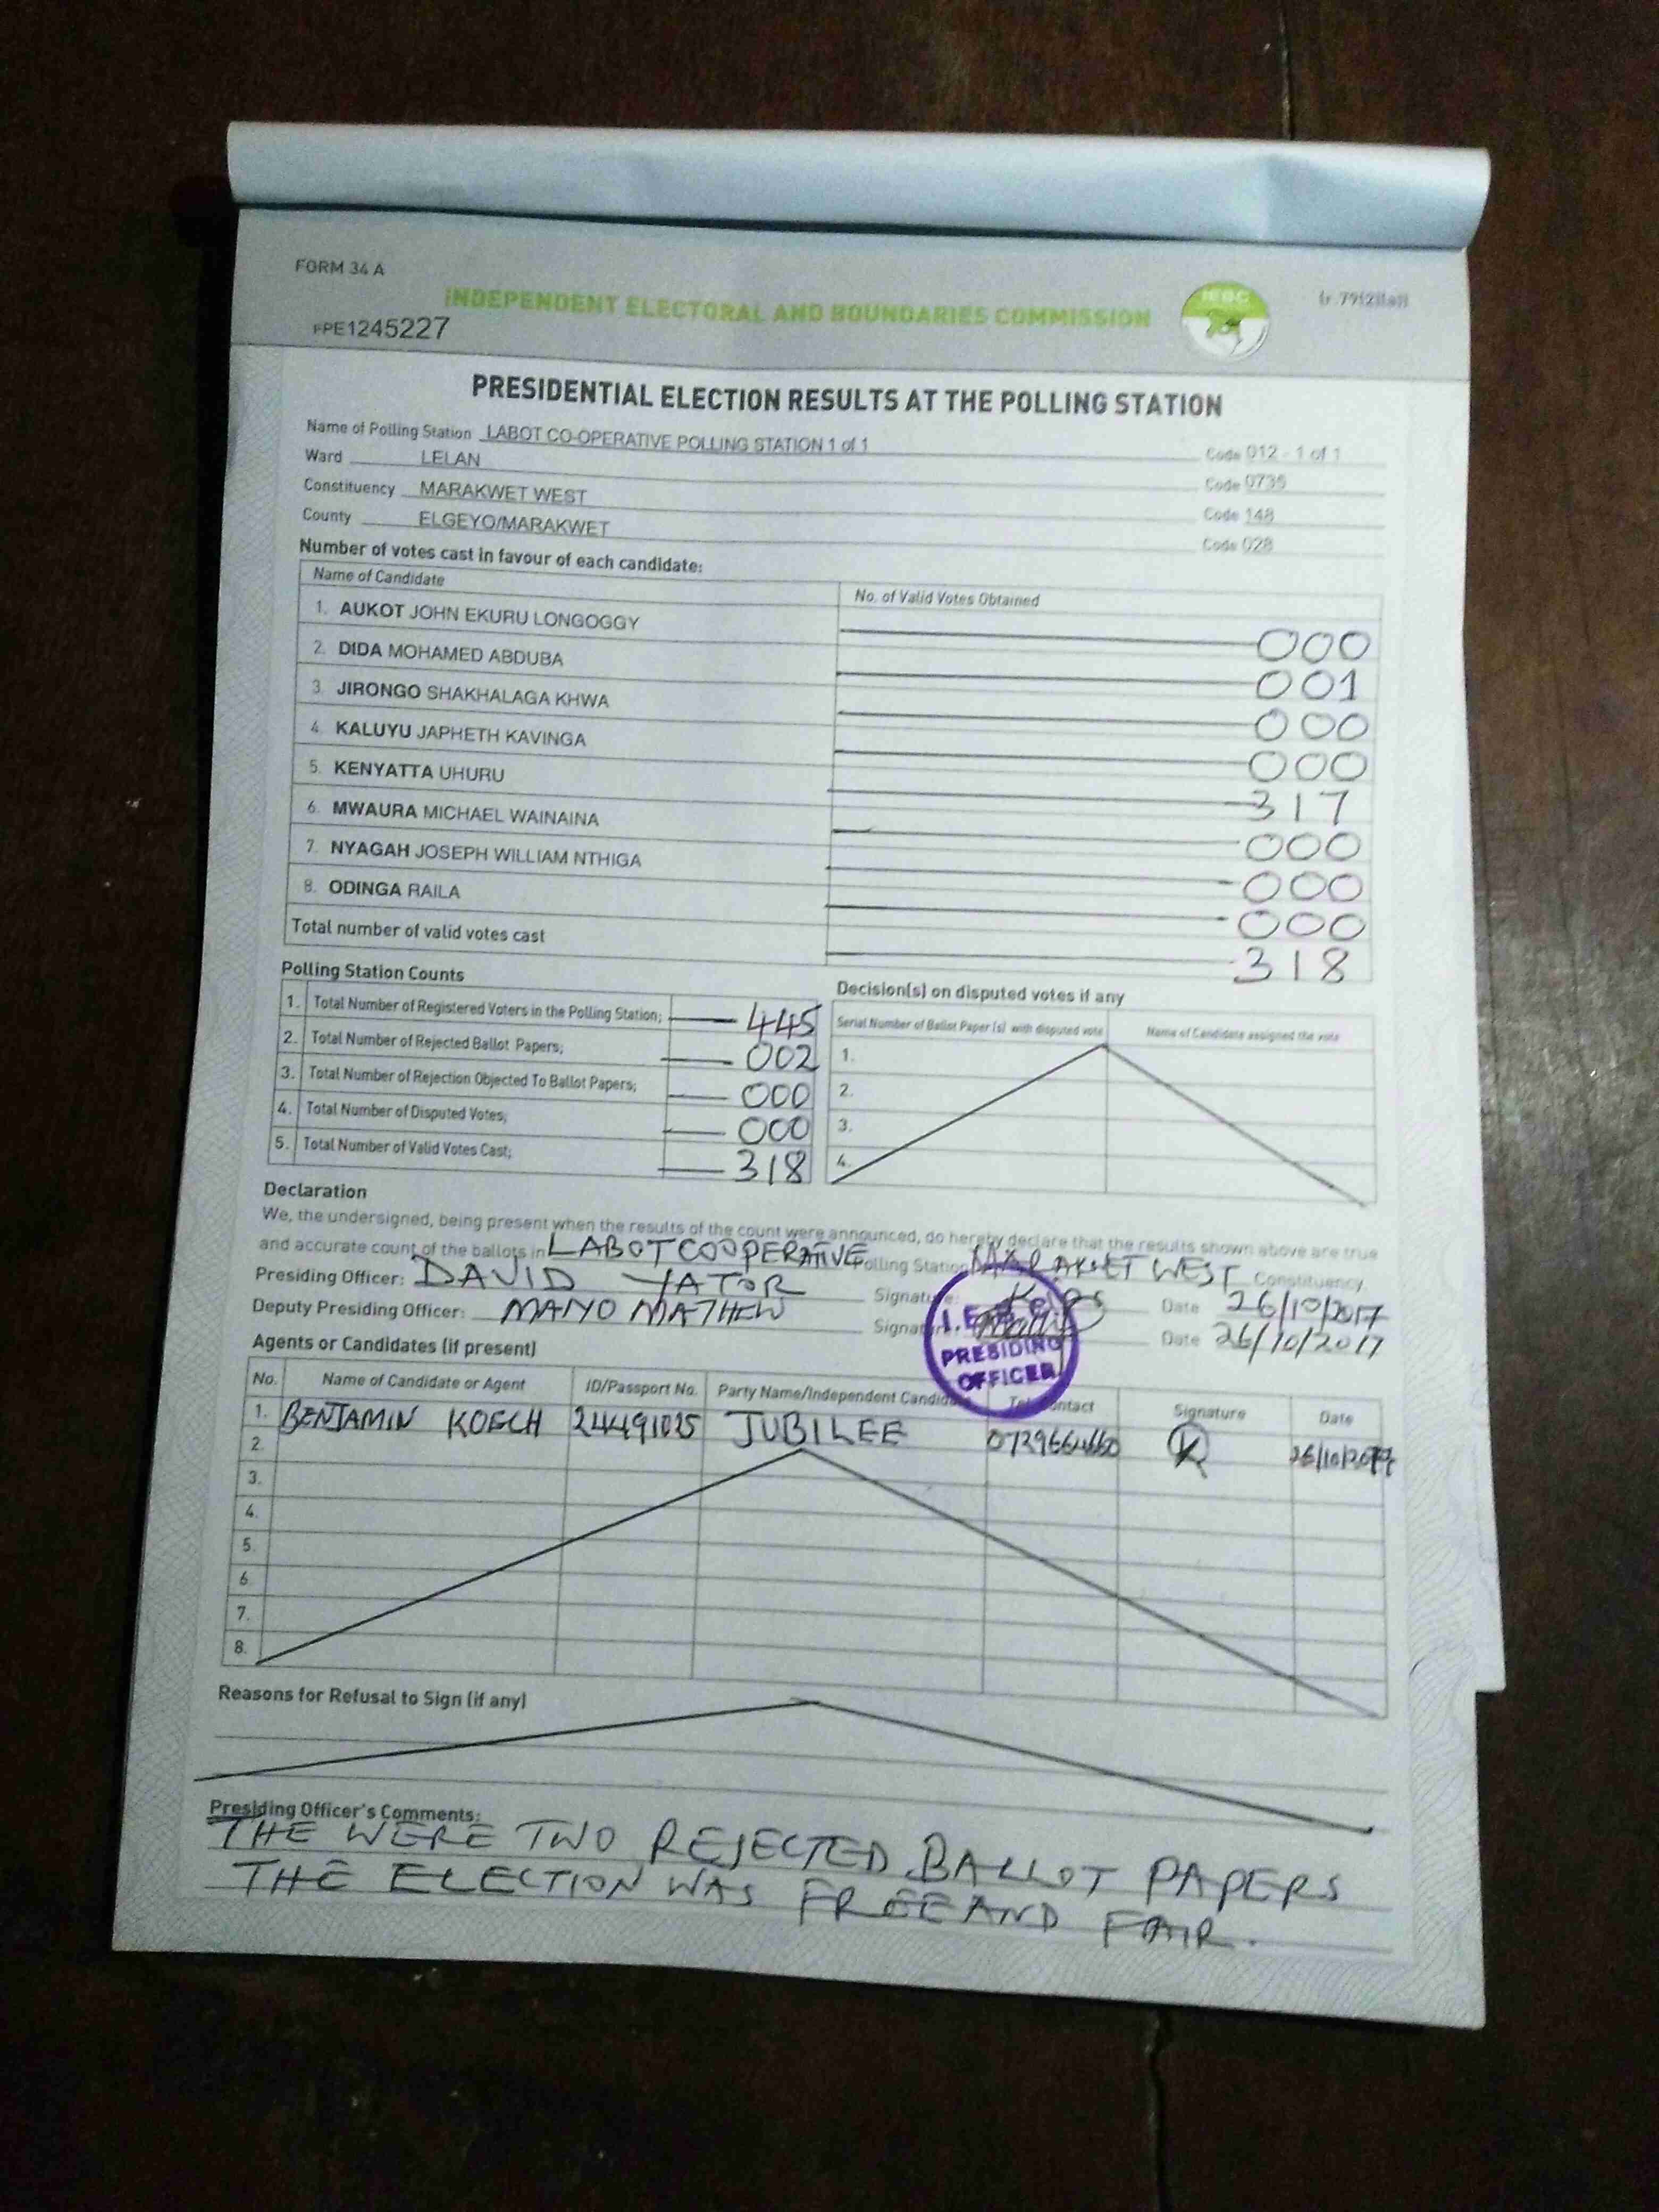 FORM 34 A
INDEPENDENT ELECTORAL AND BOUNDARIES COMMISSION
IEBC
(r. 79(2)(a))
FPE1245227
PRESIDENTIAL ELECTION RESULTS AT THE POLLING STATION
Name of Polling Station LABOT CO-OPERATIVE POLLING STATION 1 of 1 Code 012 - 1 of 1
Ward LELAN Code 0735
Constituency MARAKWET WEST Code 148
County ELGEYO/MARAKWET Code 028
Number of votes cast in favour of each candidate:
Name of Candidate No. of Valid Votes Obtained
1. AUKOT JOHN EKURU LONGOGGY 000
2. DIDA MOHAMED ABDUBA 001
3. JIRONGO SHAKHALAGA KHWA 000
4. KALUYU JAPHETH KAVINGA 000
5. KENYATTA UHURU 317
6. MWAURA MICHAEL WAINAINA 000
7. NYAGAH JOSEPH WILLIAM NTHIGA 000
8. ODINGA RAILA 000
Total number of valid votes cast 318
Polling Station Counts
1. Total Number of Registered Voters in the Polling Station; 445
2. Total Number of Rejected Ballot Papers; 002
3. Total Number of Rejection Objected To Ballot Papers; 000
4. Total Number of Disputed Votes; 000
5. Total Number of Valid Votes Cast; 318
Decision(s) on disputed votes if any
Serial Number of Ballot Paper (s) with disputed vote Name of Candidate assigned the vote
1.
2.
3.
4.
Declaration
We, the undersigned, being present when the results of the count were announced, do hereby declare that the results shown above are true
and accurate count of the ballots in LABOT COOPERATIVE Polling Station MARAKWET WEST Constituency.
Presiding Officer: DAVID YATOR Signature: Date 26/10/2017
Deputy Presiding Officer: MAIYO MATHEW Signature: Date 26/10/2017
PRESIDING
OFFICER
Agents or Candidates (if present)
No. Name of Candidate or Agent ID/Passport No. Party Name/Independent Candidate Contact Signature Date
1. BENJAMIN KOECH 24491025 JUBILEE 26/10/2017
2.
3.
4.
5.
6.
7.
8.
Reasons for Refusal to Sign (if any)
Presiding Officer's Comments:
THE WERE TWO REJECTED BALLOT PAPERS
THE ELECTION WAS FREE AND FAIR.